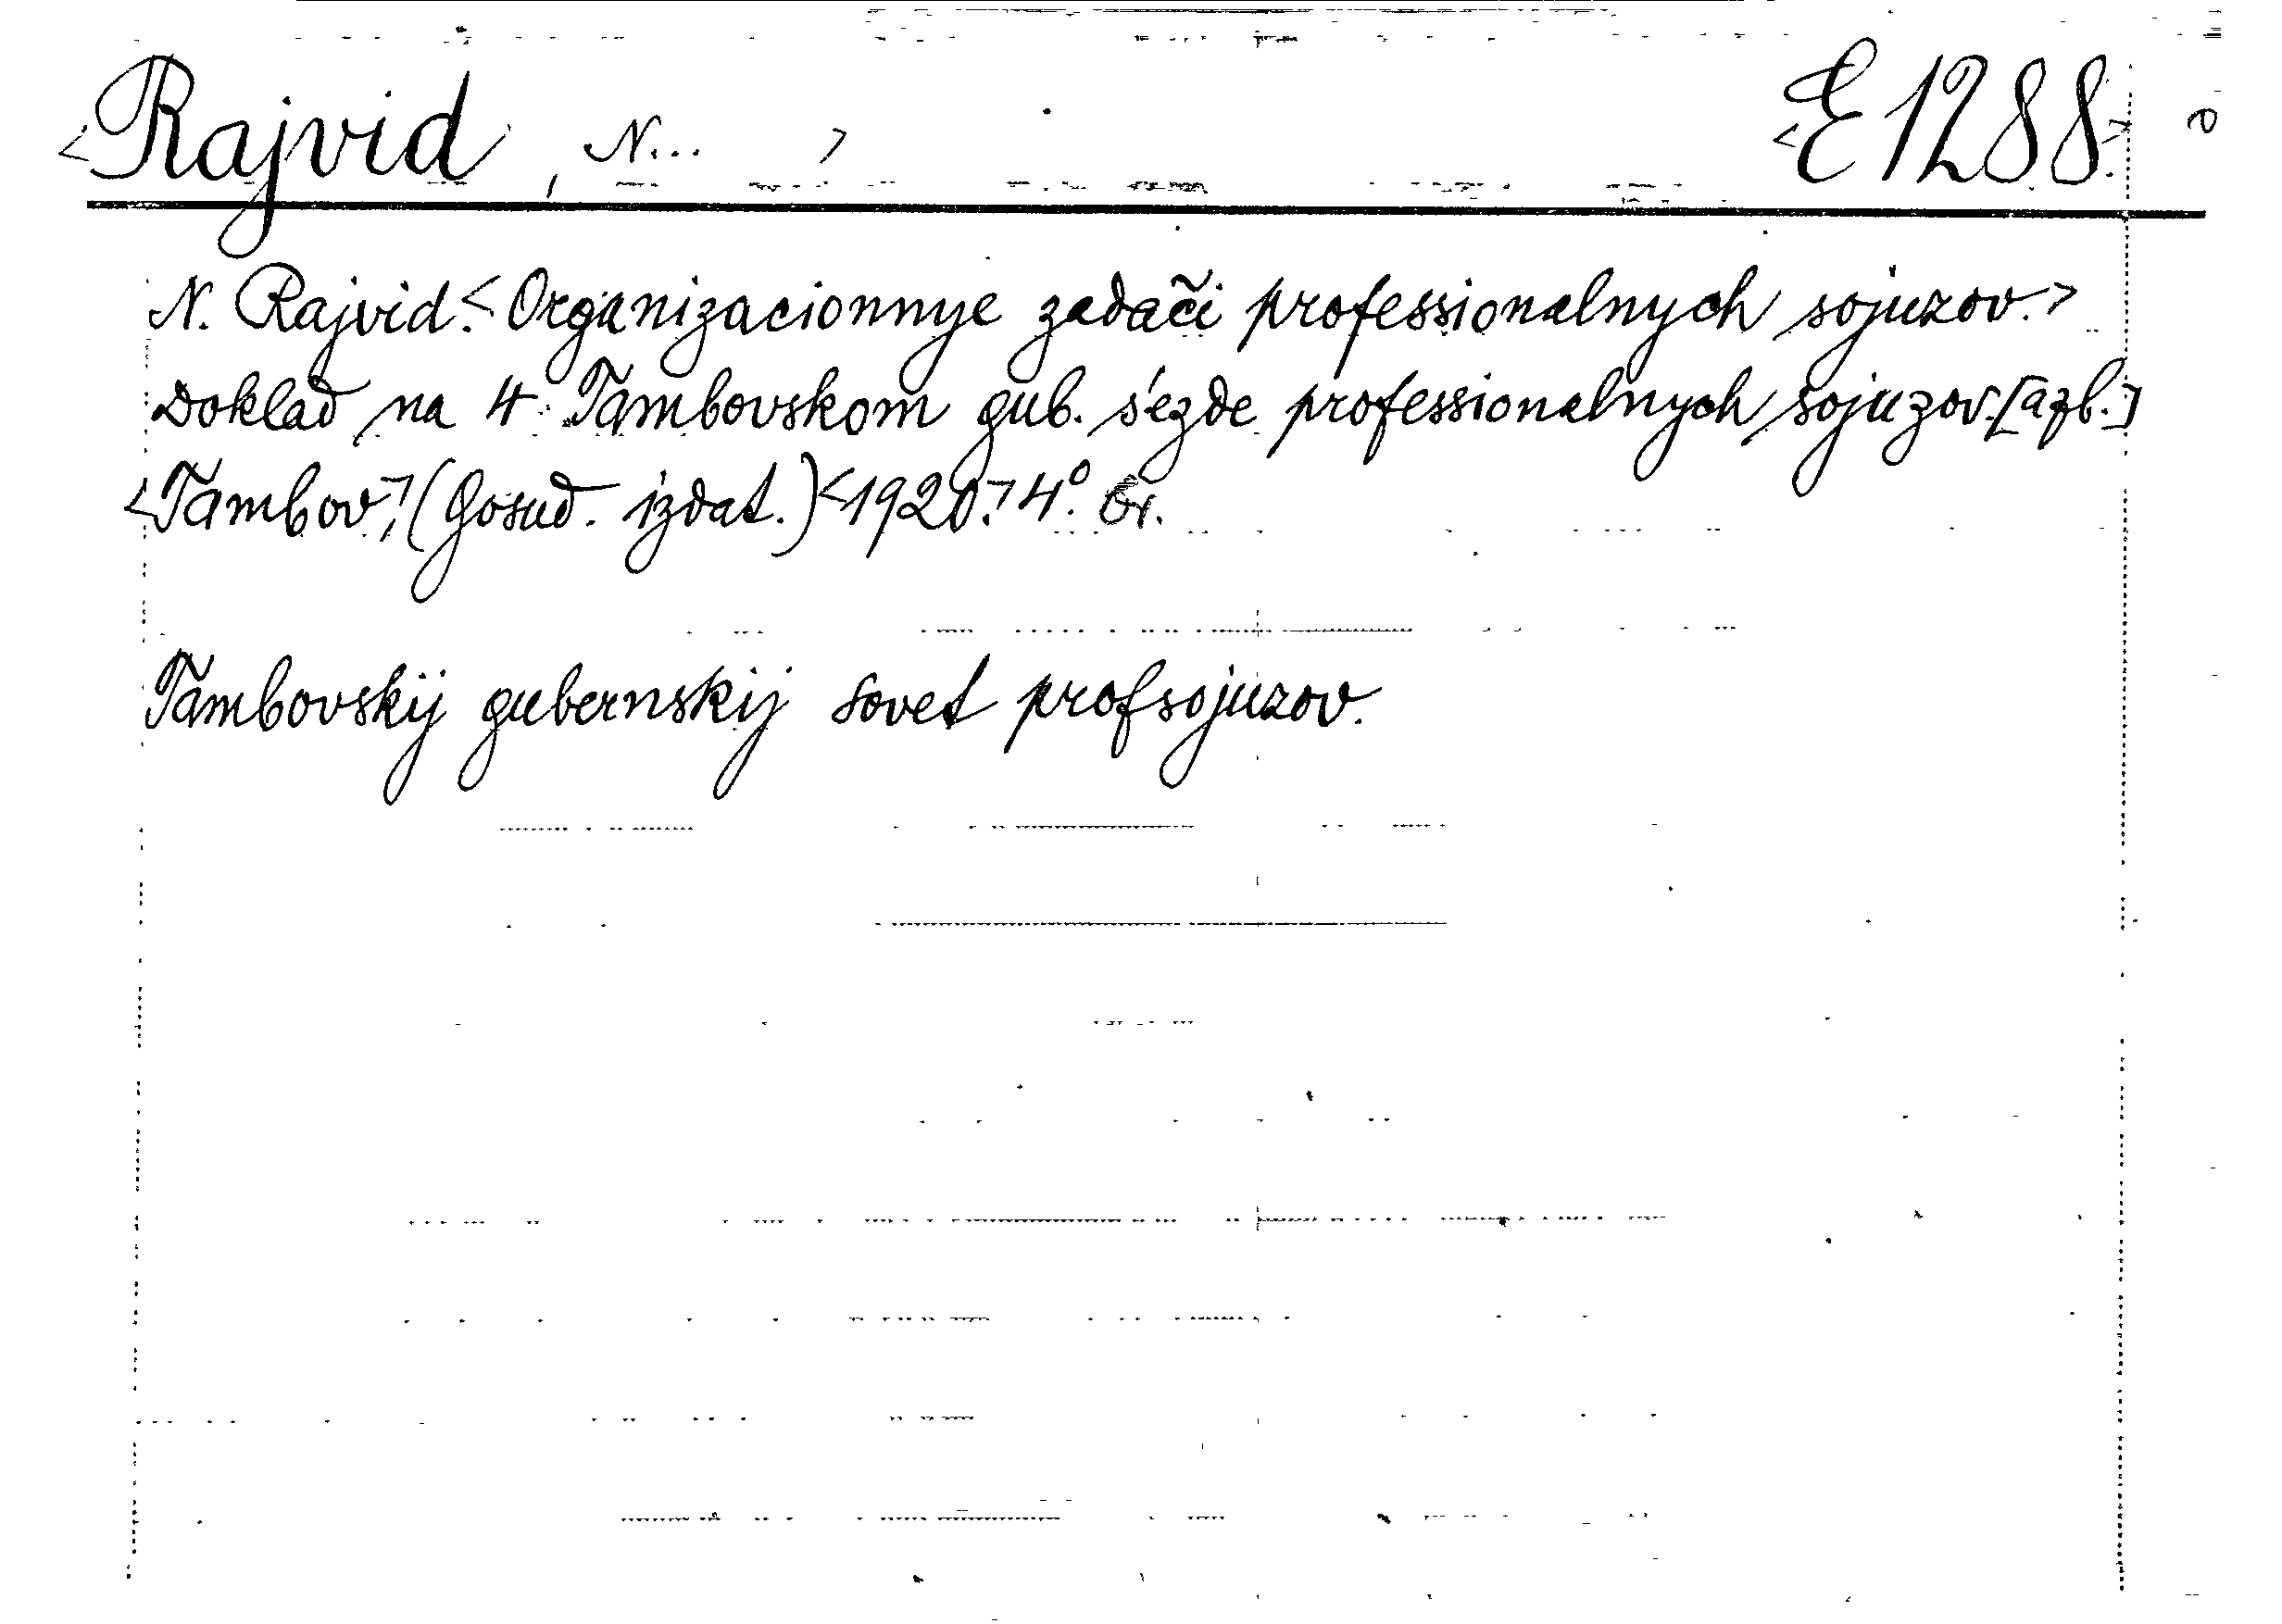 <Rajvid, N... > <E 1288.>
N. Rajvid.<Organizacionnye zadači professionalnych sojuzov.>
Doklad na 4 Tambovskom gub. s'ezde professionalnych sojuzov.[azb.]
<Tambov>,(Gosud. izdat.)<1920.>4°. Br.
Tambovskij gubernskij sovet profsojuzov.